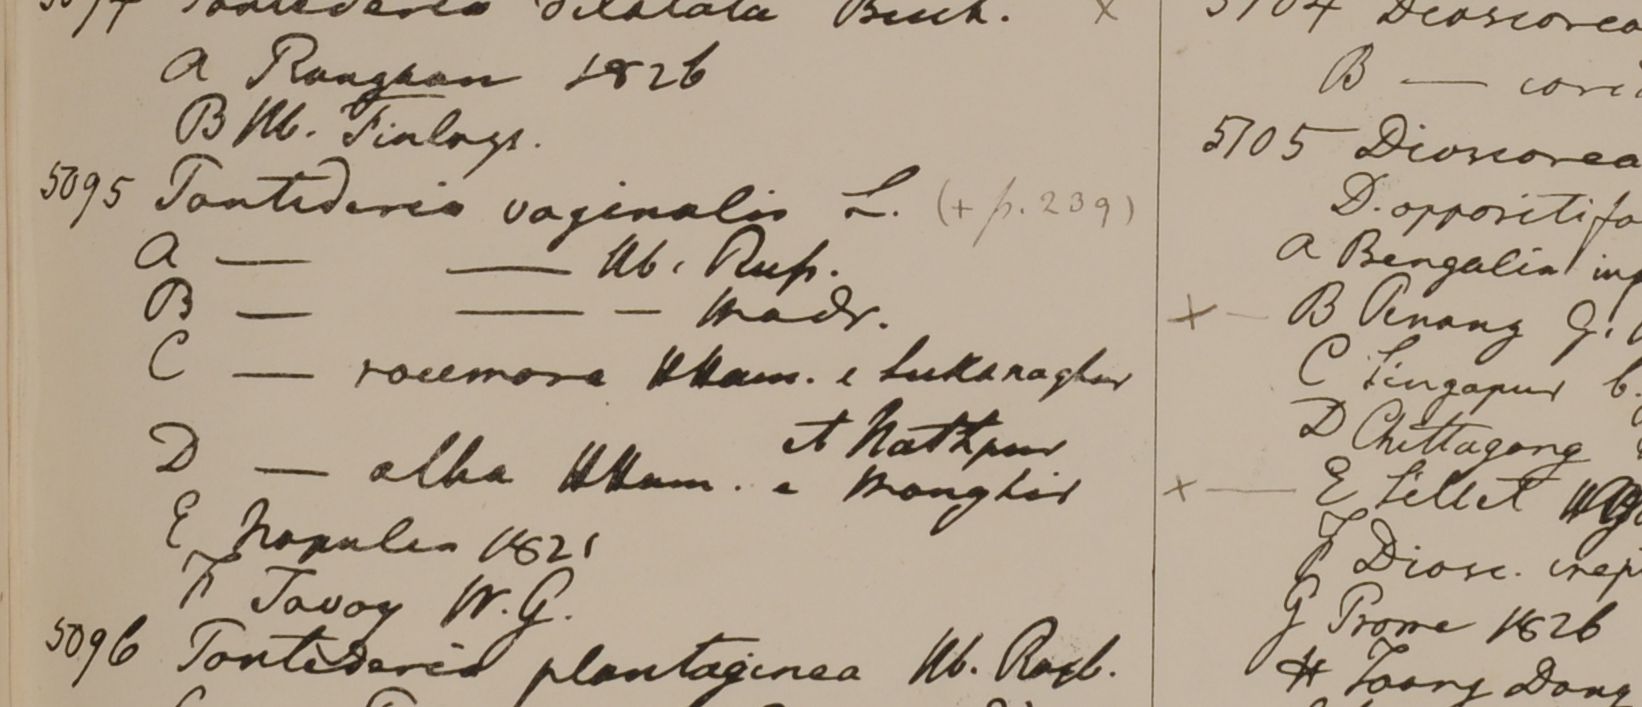 5094 Pontederia dilatata Buch. x
A Rangoon 1826
B Hb. Finlays.
5095 Pontederia vaginalis L. (+ p. 239)
A — — Hb. Russ.
B — — — Madr.
C — racemosa HHam. e Sukanaghur et Nathpur
D — alba HHam. e Monghir
E Napalia 1821
F Tavoy W.G.
5096 Pontederia plantaginea Hb. Roxb.
5104 Dioscorea
B —
5105 Dioscorea
D. oppositifo
A Bengalia
x — B Penang G.
C Singapur
D Chittagong
x — E Sillet
F Diosc.
G Prome 1826
H Taong Dong